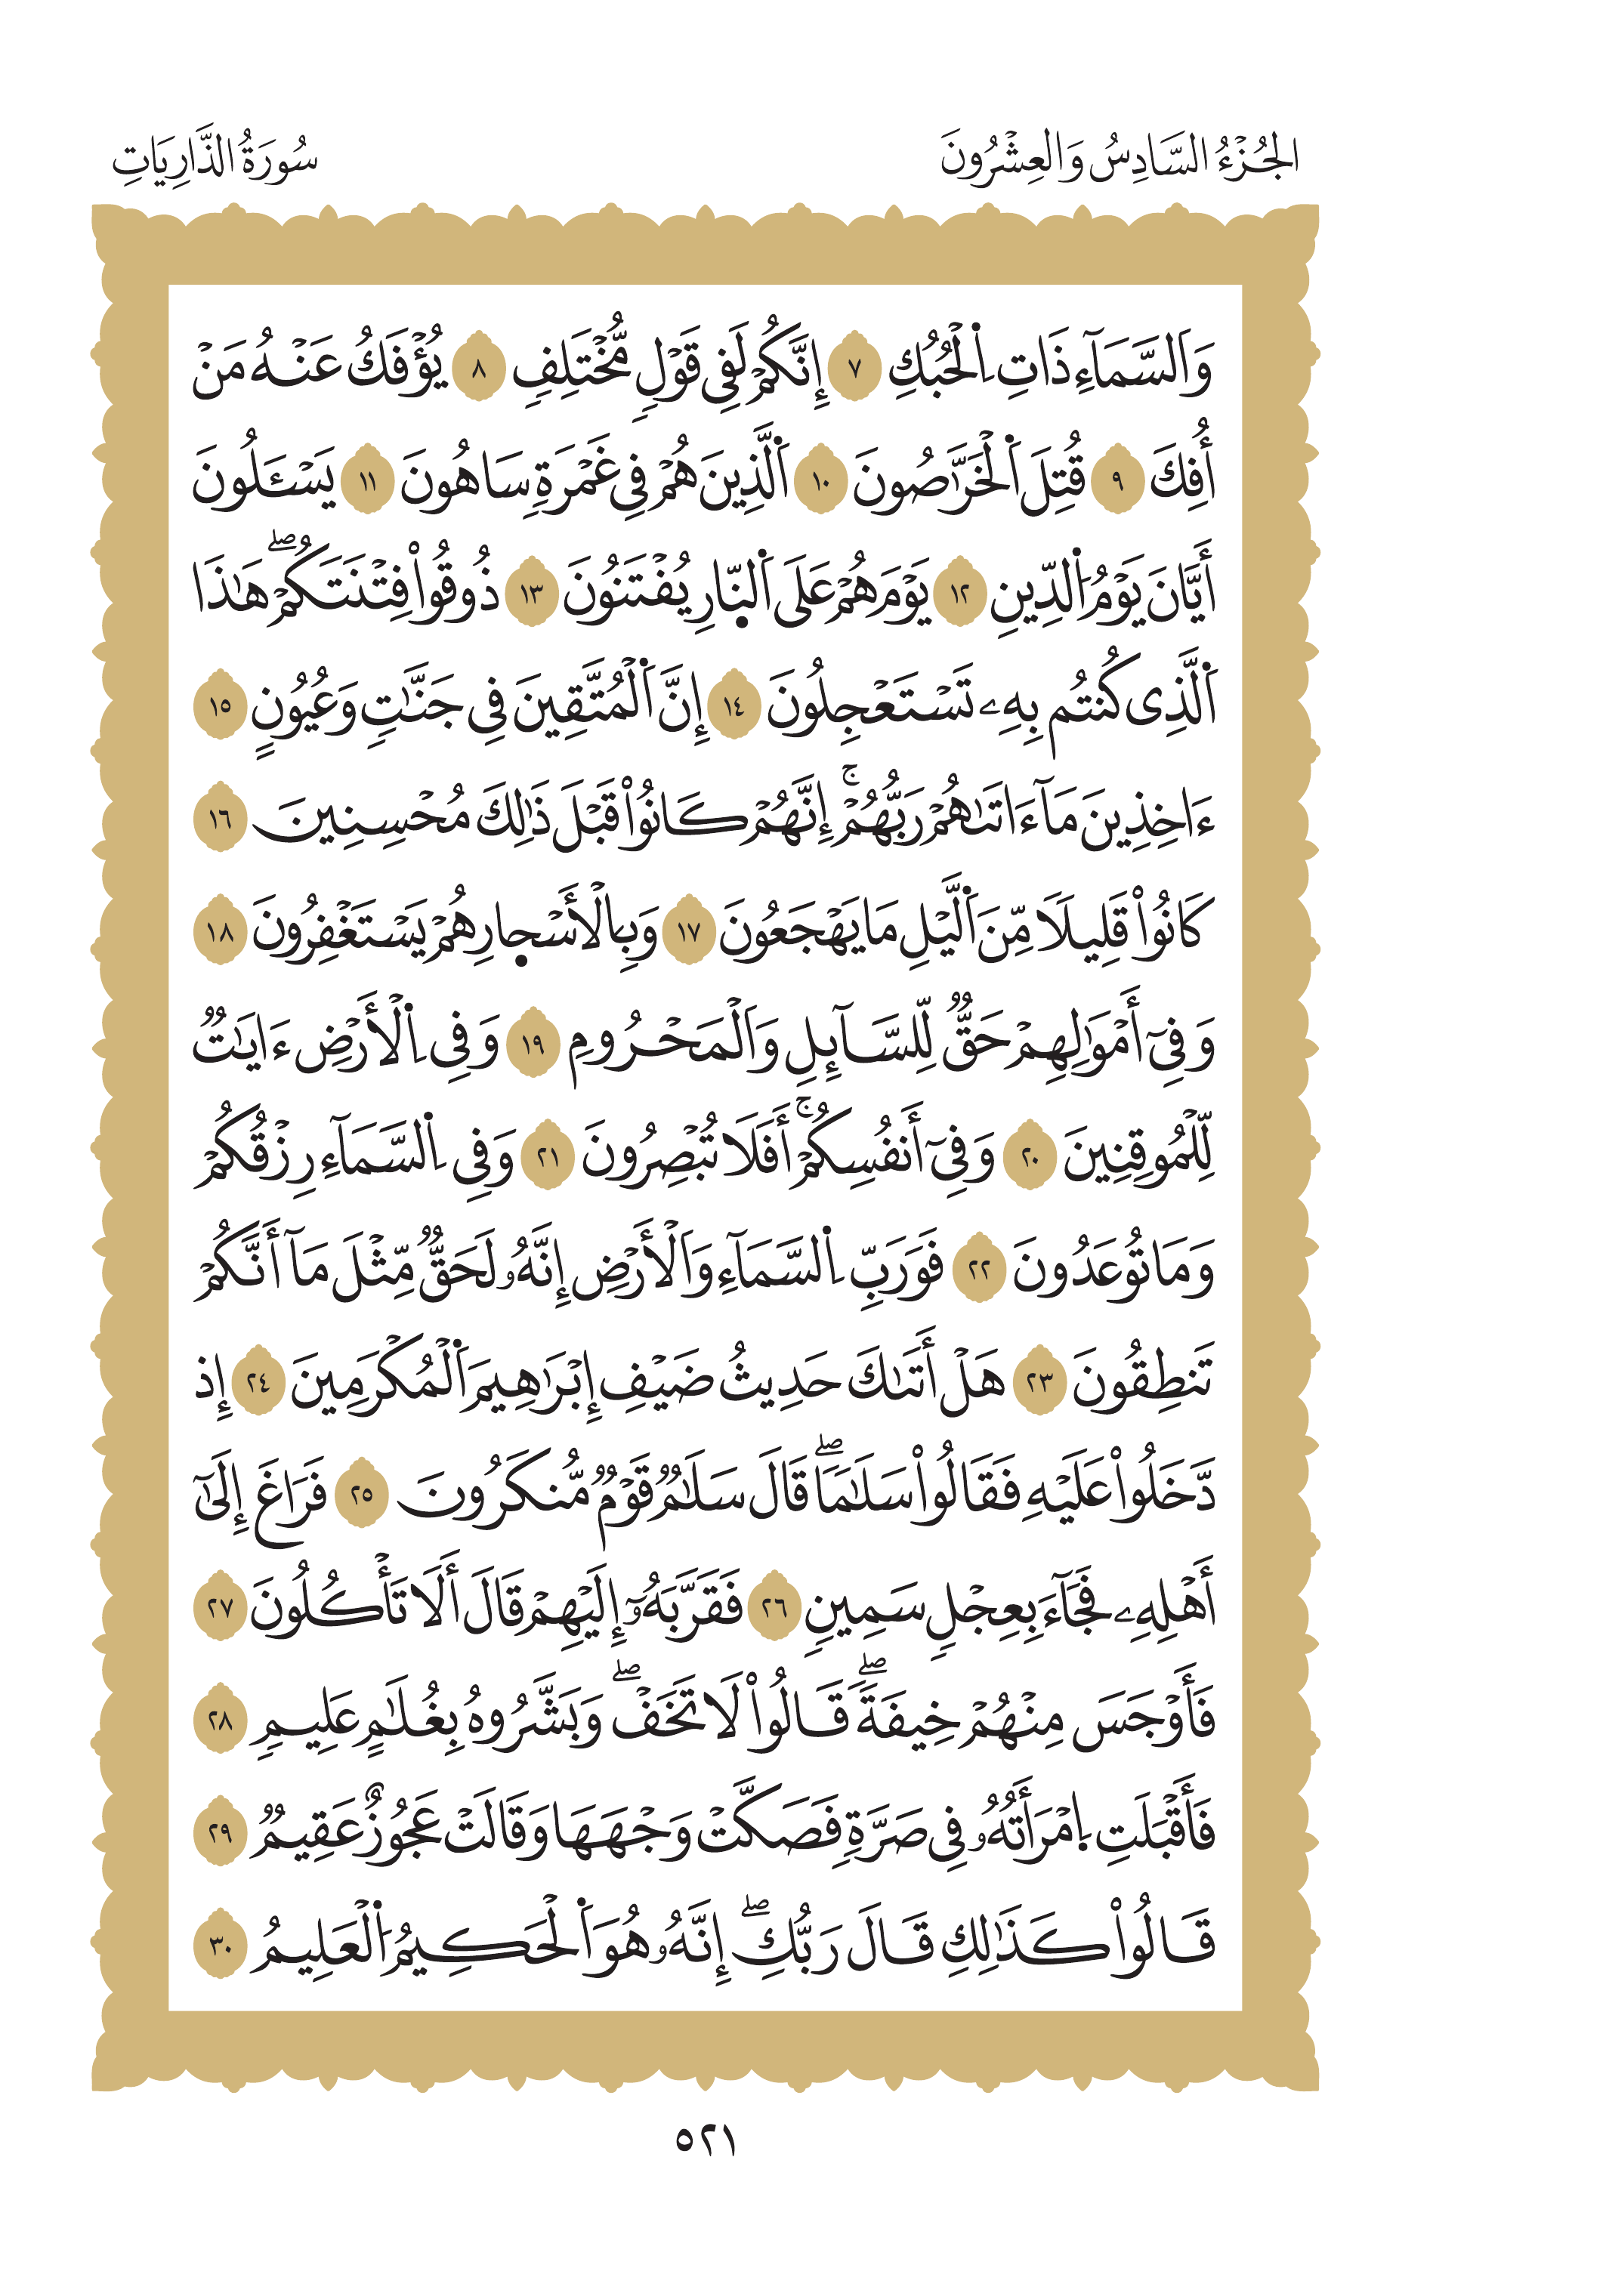 الجُزْءُ السَّادِسُ وَالعِشْرُونَ
سُورَةُ الذَّارِيَاتِ
وَاَلسَّمَآءِ ذَاتِ اِ۬لْحُبُكِ ٧ إِنَّكُمْ لَفِي قَوْلٍ مُّخْتَلِفٍ ٨ يُؤْفَكُ عَنْهُ مَنْ
أُفِكَ ٩ قُتِلَ اَ۬لْخَرَّٰصُونَ ١٠ اَ۬لَّذِينَ هُمْ فِي غَمْرَةٍ سَاهُونَ ١١ يَسْـَٔلُونَ
أَيَّانَ يَوْمُ اُ۬لدِّينِ ١٢ يَوْمَ هُمْ عَلَى اَ۬لنّ۪ارِ يُفْتَنُونَ ١٣ ذُوقُواْ فِتْنَتَكُمْۖ هَٰذَا
اَ۬لَّذِى كُنتُم بِهِۦ تَسْتَعْجِلُونَ ١٤ إِنَّ اَ۬لْمُتَّقِينَ فِى جَنَّٰتٍ وَعُيُونٍ ١٥
ءَاخِذِينَ مَآ ءَاتَىٰهُمْ رَبُّهُمْۚ إِنَّهُمْ كَانُواْ قَبْلَ ذَٰلِكَ مُحْسِنِينَ ١٦
كَانُواْ قَلِيلًا مِّنَ اَ۬لَّيْلِ مَا يَهْجَعُونَ ١٧ وَبِالْأَسْح۪ارِ هُمْ يَسْتَغْفِرُونَ ١٨
وَفِىٓ أَمْوَٰلِهِمْ حَقٌّ لِّلسَّآئِلِ وَاَلْمَحْرُومِ ١٩ وَفِى اِ۬لْأَرْضِ ءَايَٰتٌ
لِّلْمُوقِنِينَ ٢٠ وَفِىٓ أَنفُسِكُمْۚ أَفَلَا تُبْصِرُونَ ٢١ وَفِى اِ۬لسَّمَآءِ رِزْقُكُمْ
وَمَا تُوعَدُونَ ٢٢ فَوَرَبِّ اِ۬لسَّمَآءِ وَاَلْأَرْضِ إِنَّهُۥ لَحَقٌّ مِّثْلَ مَآ أَنَّكُمْ
تَنطِقُونَ ٢٣ هَلْ أَتَىٰكَ حَدِيثُ ضَيْفِ إِبْرَٰهِيمَ اَ۬لْمُكْرَمِينَ ٢٤ إِذ
دَّخَلُواْ عَلَيْهِ فَقَالُواْ سَلَٰمًاۖ قَالَ سَلَٰمٌ قَوْمٌ مُّنكَرُونَ ٢٥ فَرَاغَ إِلَىٰٓ
أَهْلِهِۦ فَجَآءَ بِعِجْلٍ سَمِينٍ ٢٦ فَقَرَّبَهُۥٓ إِلَيْهِمْ قَالَ أَلَا تَأْكُلُونَ ٢٧
فَأَوْجَسَ مِنْهُمْ خِيفَةًۖ قَالُواْ لَا تَخَفْۖ وَبَشَّرُوهُ بِغُلَٰمٍ عَلِيمٍ ٢٨
فَأَقْبَلَتِ اِ۪مْرَأَتُهُۥ فِى صَرَّةٍ فَصَكَّتْ وَجْهَهَا وَقَالَتْ عَجُوزٌ عَقِيمٌ ٢٩
قَالُواْ كَذَٰلِكِ قَالَ رَبُّكِۖ إِنَّهُۥ هُوَ اَ۬لْحَكِيمُ اُ۬لْعَلِيمُ ٣٠
٥٢١